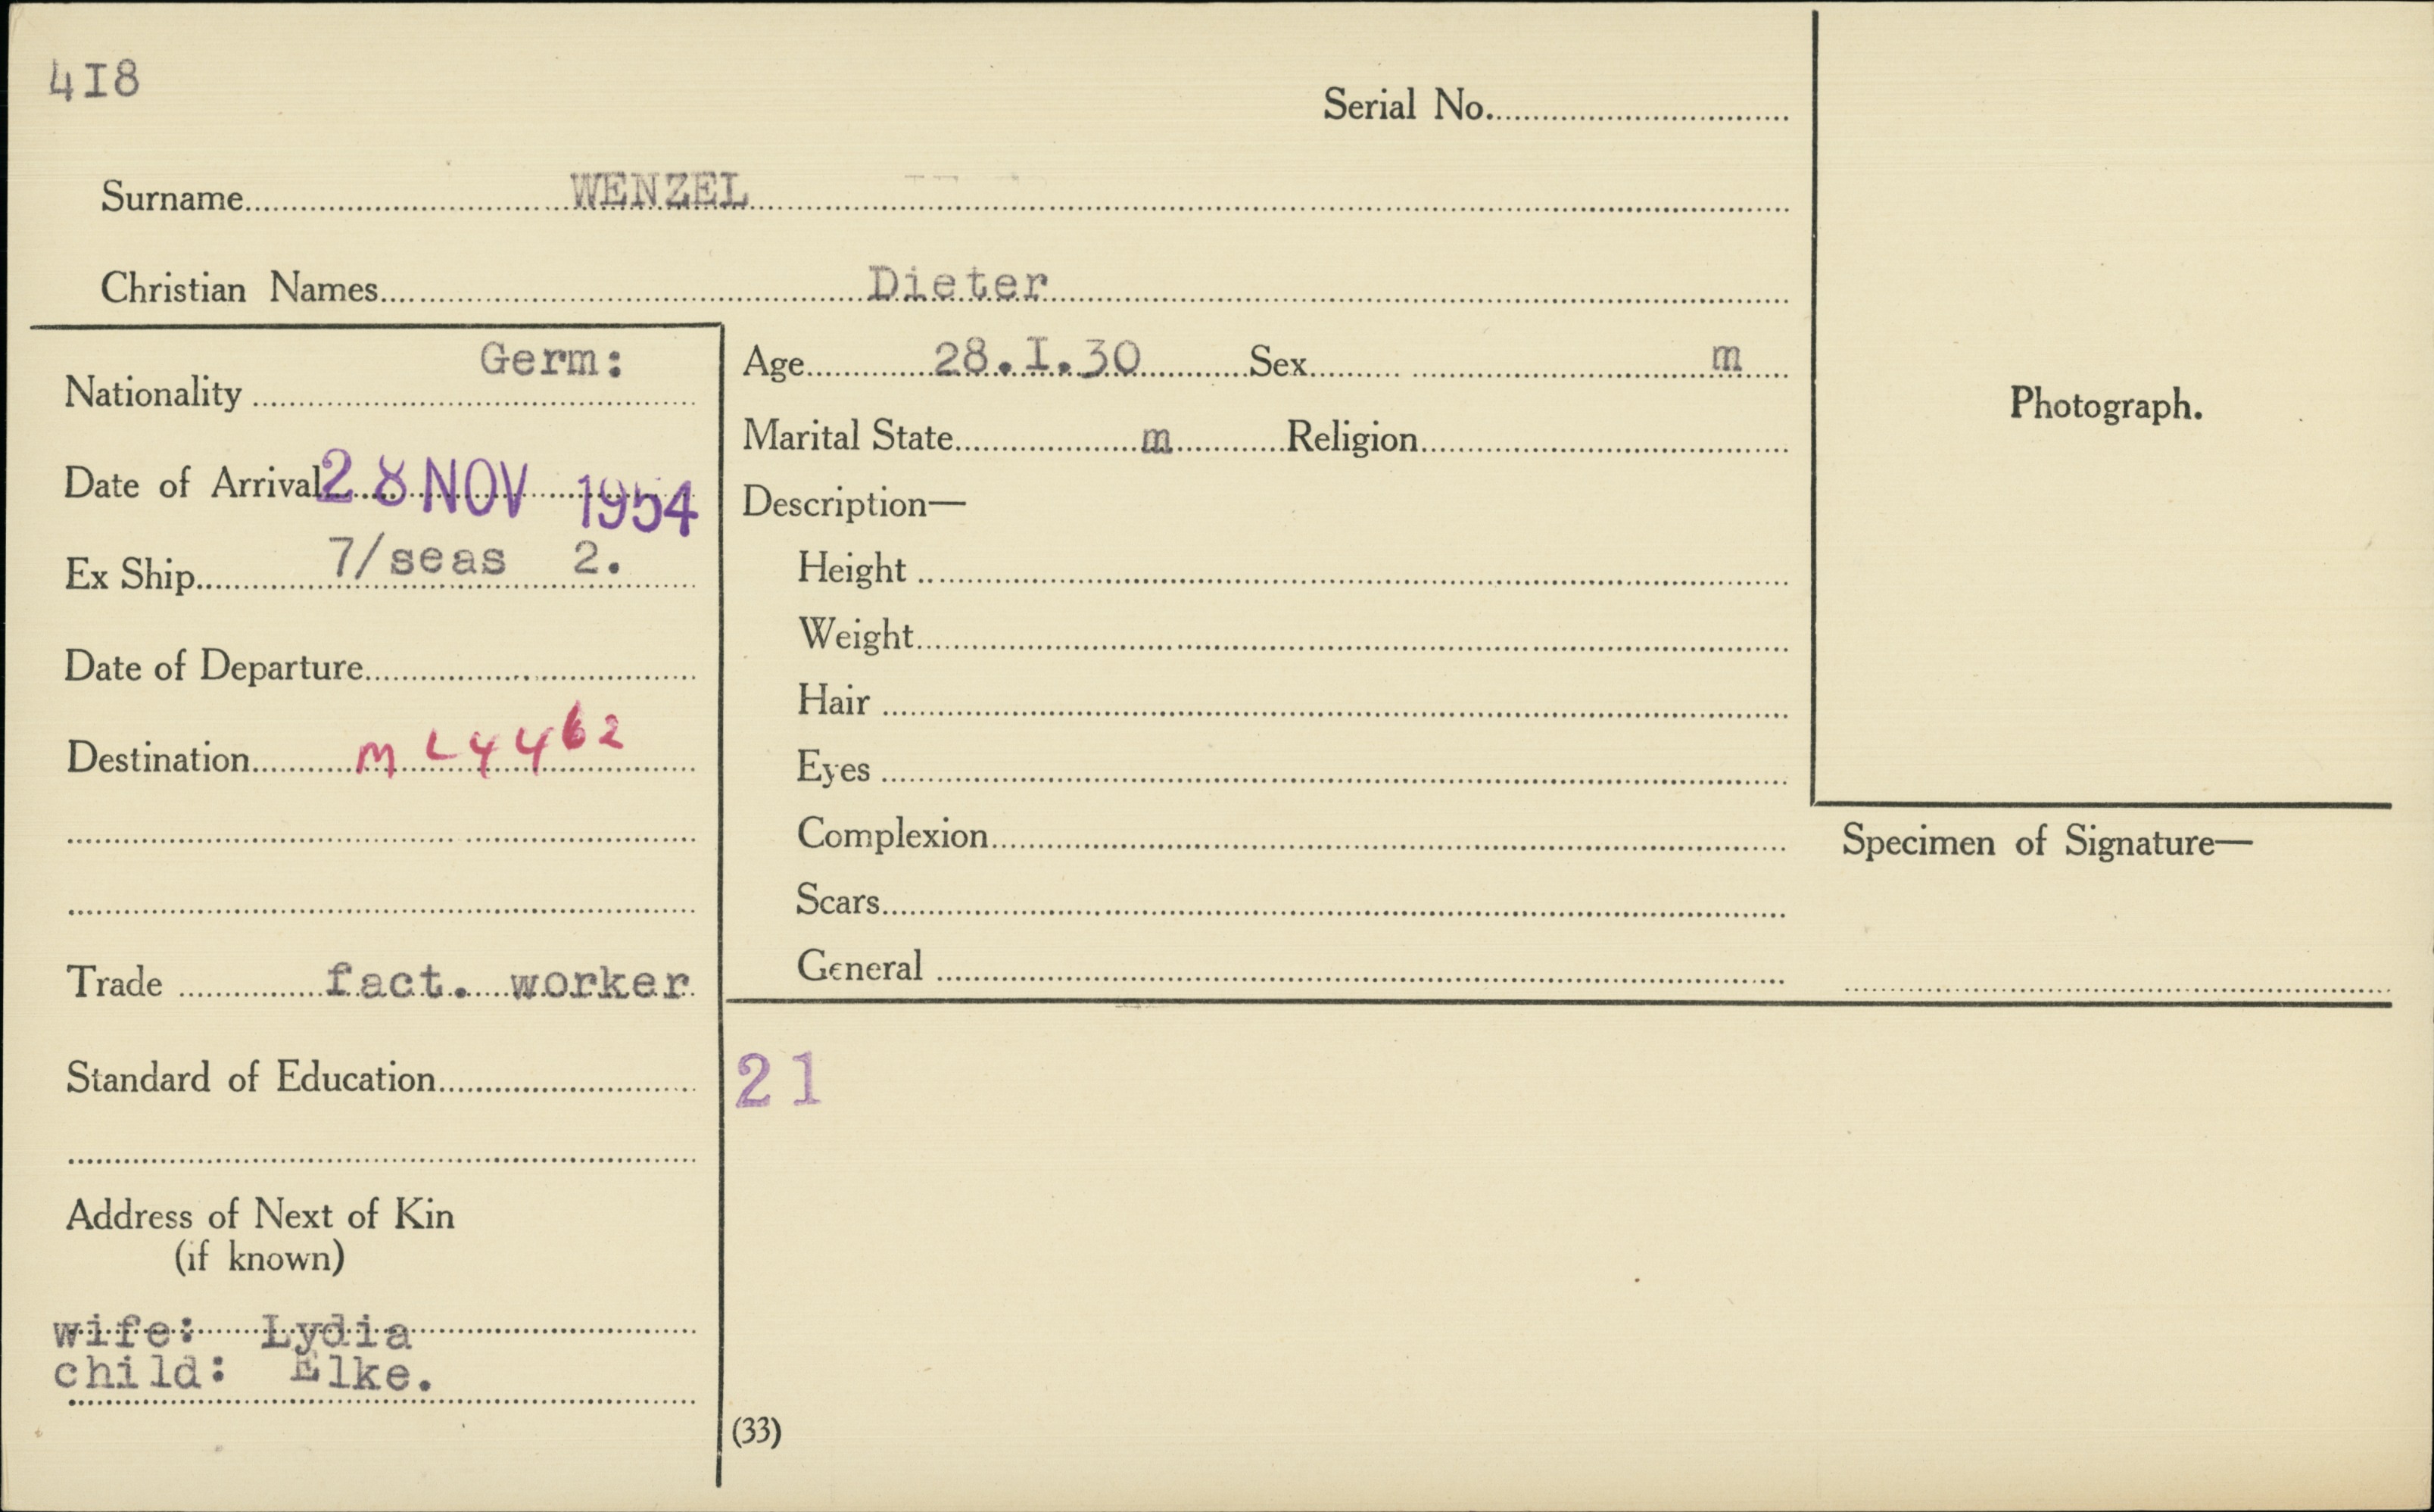 4I8
Serial No.
Surname WENZEL
Christian Names Dieter
Nationality Germ:
Date of Arrival 28 NOV 1954
Ex Ship 7/seas 2.
Date of Departure
Destination M L4462
Trade fact. worker
Standard of Education
Address of Next of Kin
(if known)
wife: Lydia
child: Elke.
Age 28.I.30 Sex m
Marital State m Religion
Description—
Height
Weight
Hair
Eyes
Complexion
Scars
General
21
(33)
Photograph.
Specimen of Signature—